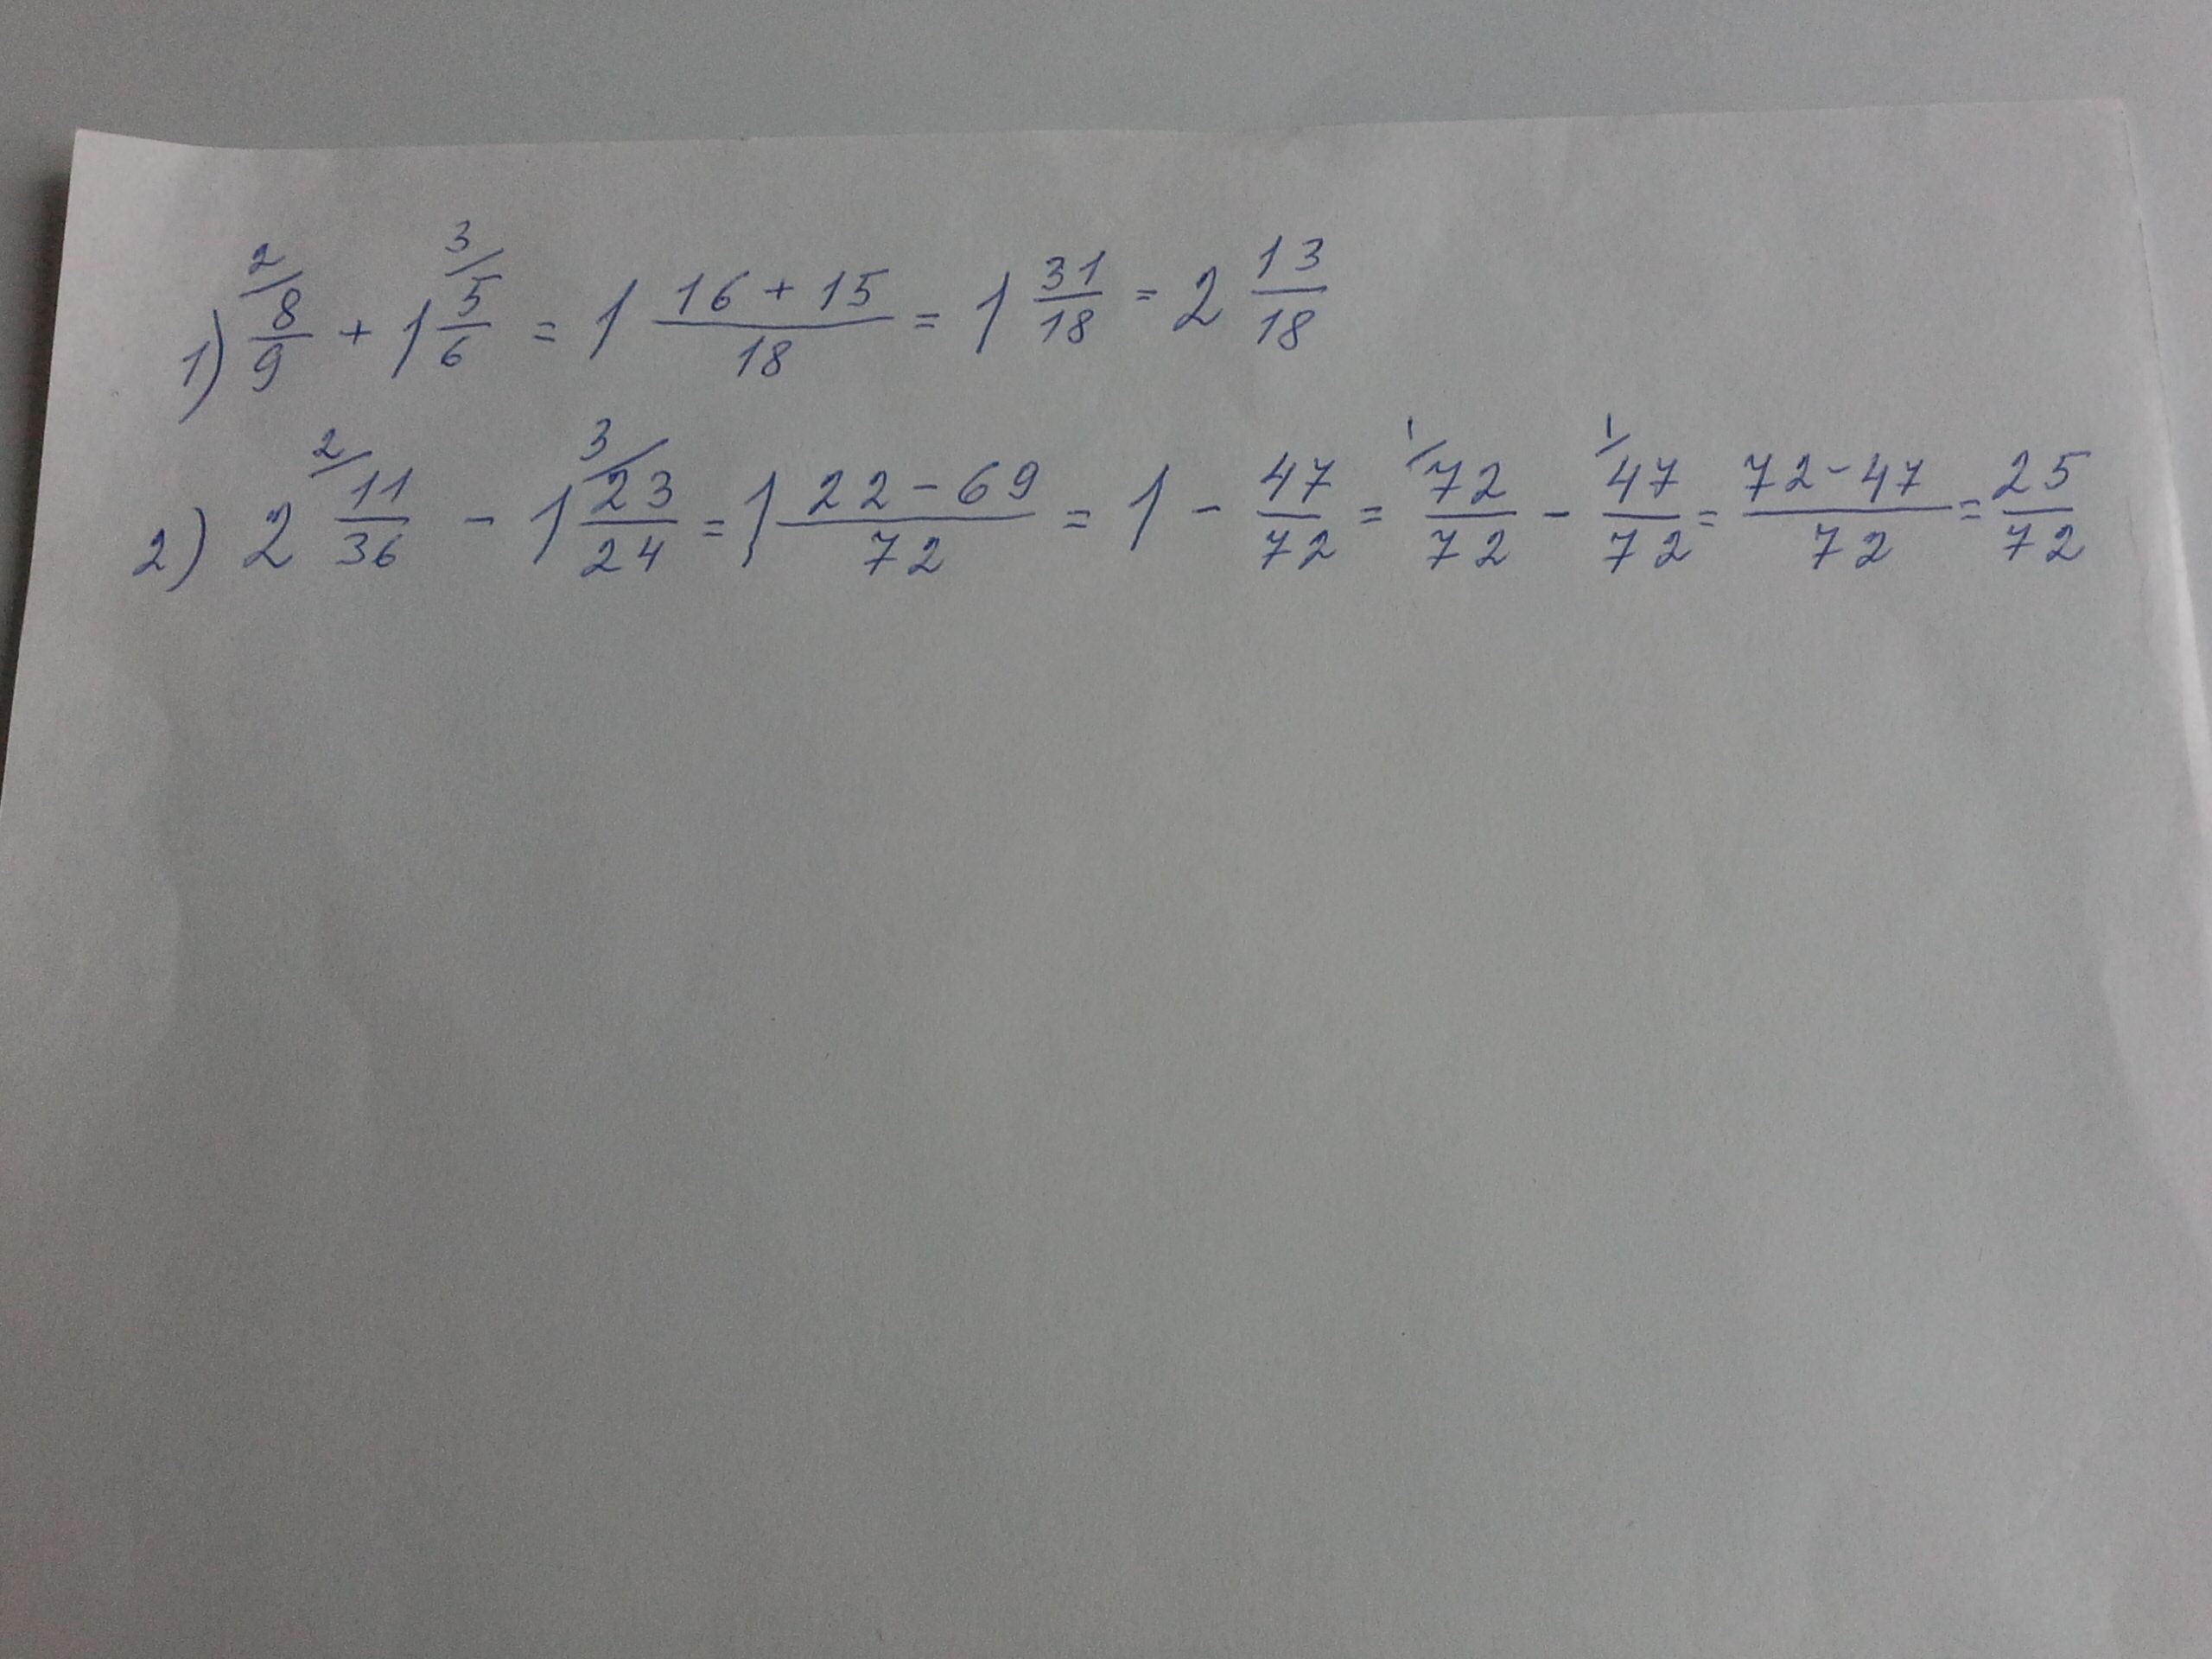 1) ²/ 8/9 + 1 ³/ 5/6 = 1 (16 + 15)/18 = 1 31/18 = 2 13/18
2) 2 ²/ 11/36 - 1 ³/ 23/24 = 1 (22 - 69)/72 = 1 - 47/72 = ¹/ 72/72 - ¹/ 47/72 = (72 - 47)/72 = 25/72